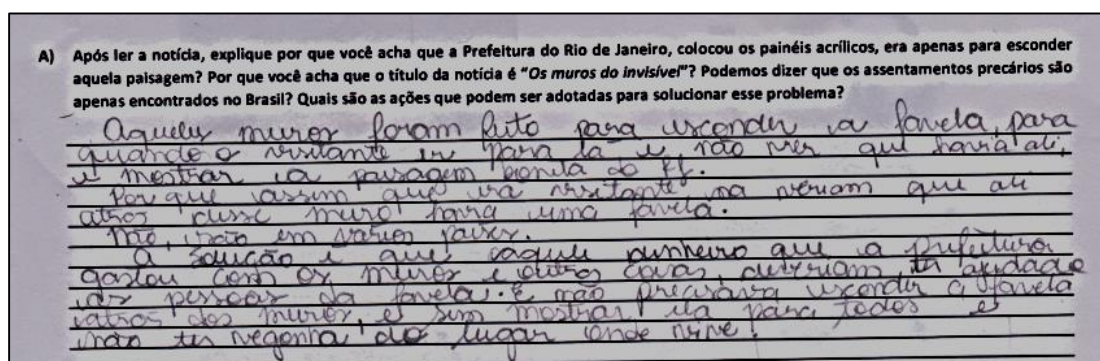 A) Após ler a notícia, explique por que você acha que a Prefeitura do Rio de Janeiro, colocou os painéis acrílicos, era apenas para esconder
aquela paisagem? Por que você acha que o título da notícia é "Os muros do invisível"? Podemos dizer que os assentamentos precários são
apenas encontrados no Brasil? Quais são as ações que podem ser adotadas para solucionar esse problema?
Aqueles muros foram feito para esconder a favela, para
quando o visitante ir para lá e não ver que havia ali,
e mostrar a paisagem bonita do
Por que assim que visitante na veriam que ali
atros desse muro havia uma favela.
não, em varios paises.
a solução é que daquele dinheiro que a prefeitura
gastou com os muros e outros coisas, deveriam ter ajudado
as pessoas da favela. E não precisava esconder a favela
atros dos muros, e sim mostrar ela para todos e
não ter vegonha do lugar onde vive!